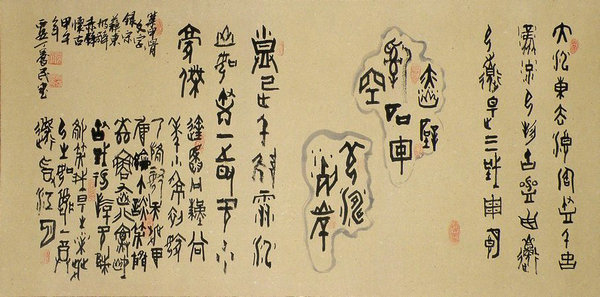 大江東去浪淘盡千古
風流人物故壘西邊
人道是三國周郎
赤壁
亂石穿
空
驚濤
拍岸
捲起千堆雪江
山如畫一時多少
豪傑
遙想公瑾當
年小喬初嫁
了雄姿英發羽
扇綸巾談笑間
檣櫓灰飛煙滅
故國神遊多情
應笑我早生華髮
人生如夢一尊
還酹江月
集甲骨
文字
録宋
蘇東
赤壁
懷古
甲午
年